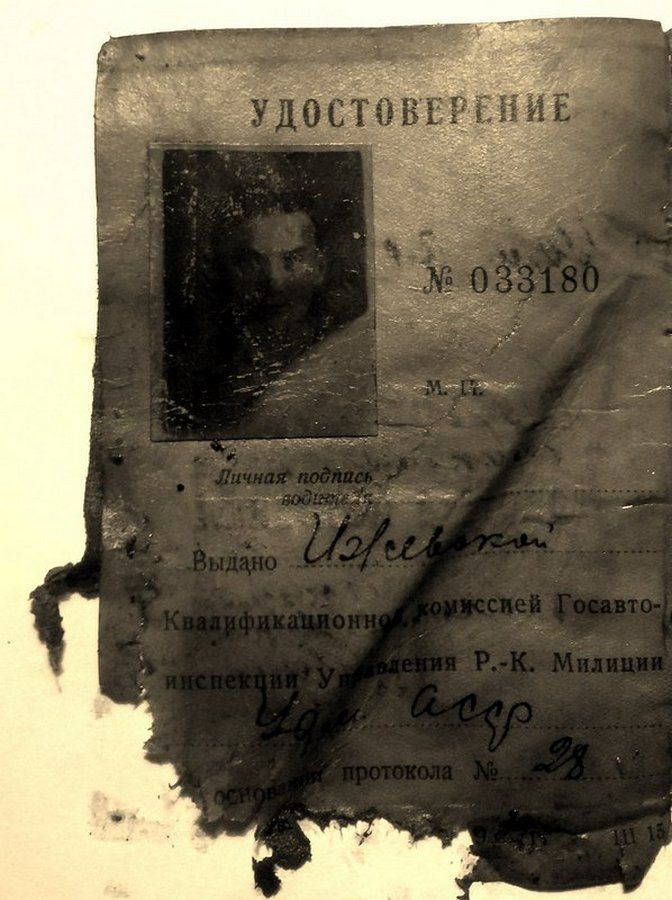 УДОСТОВЕРЕНИЕ
№ 033180
М. П.
Личная подпись
водителя
Выдано Ижевской
Квалификационной комиссией Госавто-
инспекции Управления Р.-К. Милиции
Удм АССР
основании протокола № 28